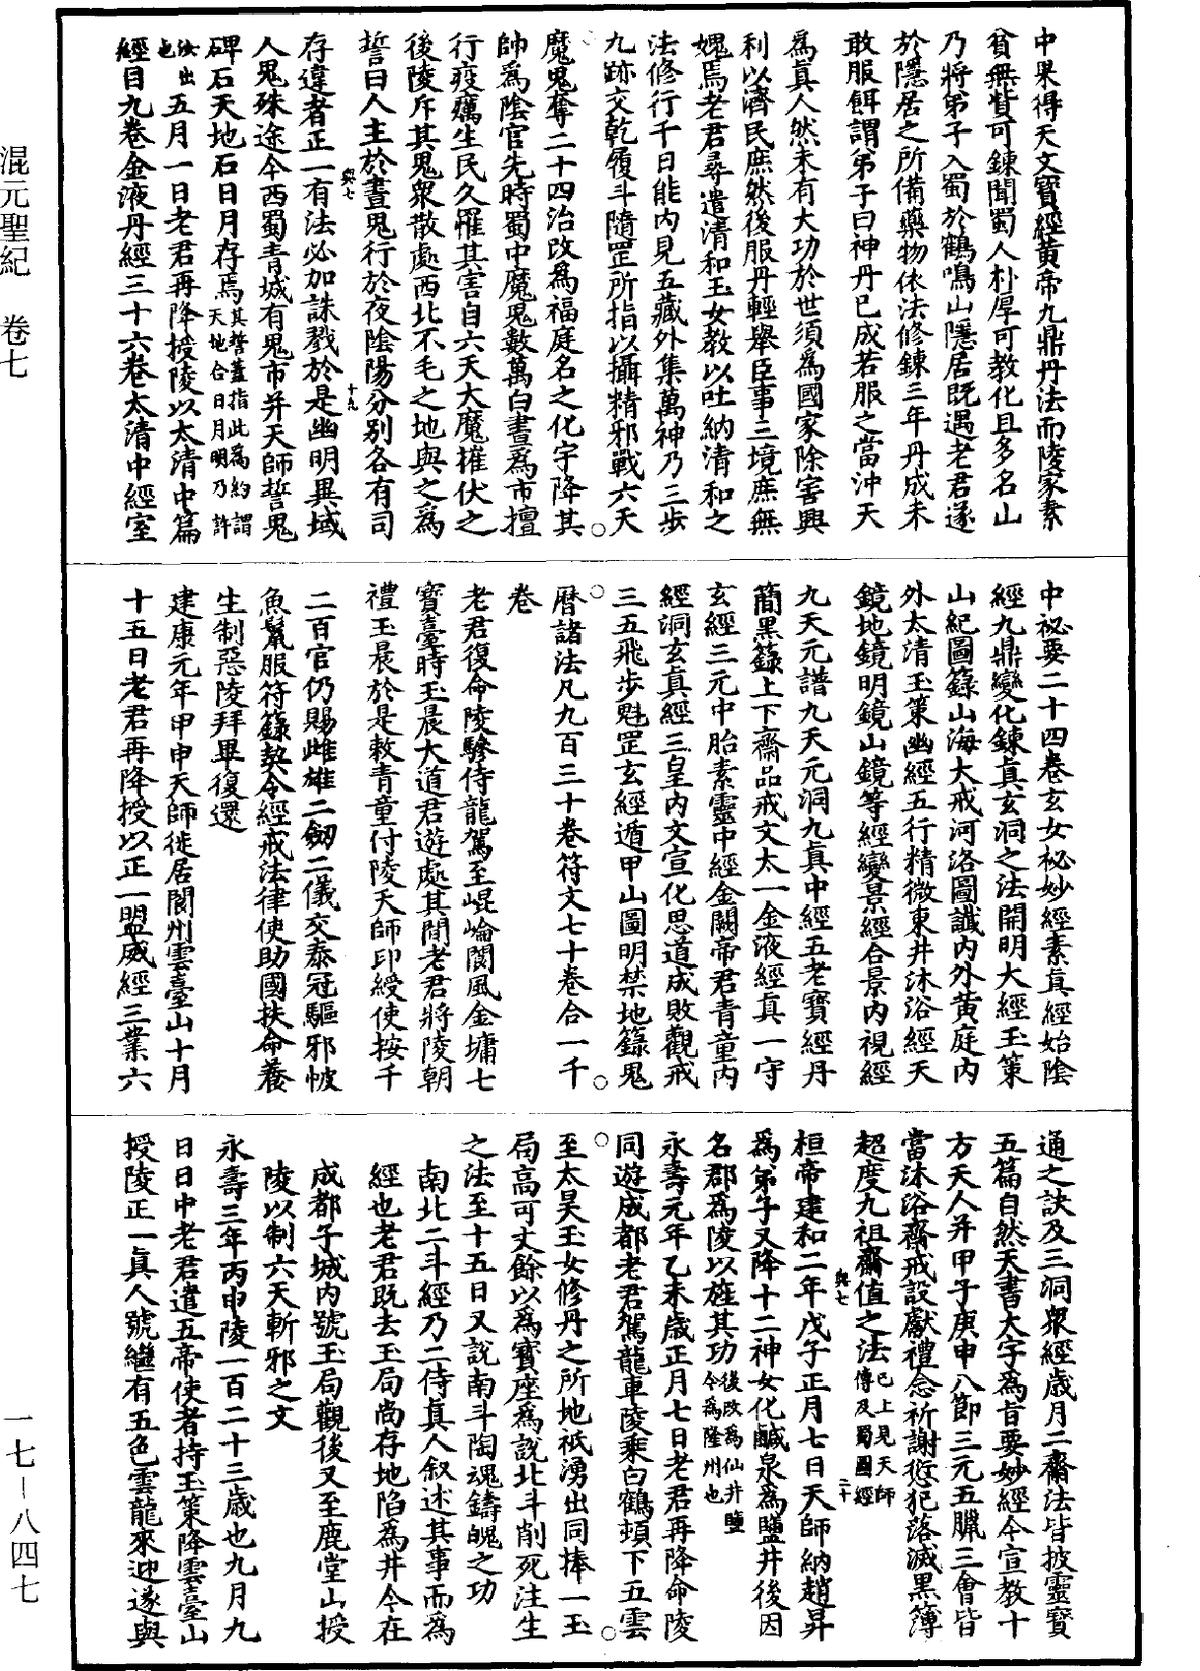 中果得天文寳經黄帝九鼎丹法而陵家素
貧無貲可鍊聞蜀人朴厚可教化且多名山
乃將弟子入蜀於鶴鳴山隱居既遇老君遂
於隱居之所備藥物依法修鍊三年丹成未
敢服餌謂弟子曰神丹已成若服之當沖天
爲真人然未有大功於世須爲國家除害興
利以濟民庶然後服丹輕舉臣事三境庶無
媿焉老君尋遣清和玉女教以吐納清和之
法修行千日能内見五藏外集萬神乃三步
九跡交乾履斗隨罡所指以攝精邪戰六天
魔鬼奪二十四治改爲福庭名之化宇降其
帥爲陰官先時蜀中魔鬼數萬白晝爲市擅
行疫癘生民久罹其害自六天大魔摧伏之
後陵斥其鬼衆散處西北不毛之地與之爲
誓曰人主於晝鬼行於夜陰陽分別各有司
與七
十九
存違者正一有法必加誅戮於是幽明異域
人鬼殊途今西蜀青城有鬼市并天師誓鬼
碑石天地石日月存焉其誓蓋指此為約謂
天地合日月明乃許
汝出
也五月一日老君再降授陵以太清中篇
經目九卷金液丹經三十六卷太清中經室
中祕要二十四卷玄女祕妙經素真經始陰
經九鼎變化鍊真玄洞之法開明大經玉策
山紀圖籙山海大戒河洛圖讖内外黄庭内
外太清玉策幽經五行精微東井沐浴經天
鏡地鏡明鏡山鏡等經變景經合景内視經
九天元譜九天元洞九真中經五老寳經丹
簡黑籙上下齋品戒文太一金液經真一守
玄經三元中胎素靈中經金闕帝君青童内
經洞玄真經三皇内文宣化思道成敗觀戒
三五飛步魁罡玄經遁甲山圖明禁地籙鬼
曆諸法凡九百三十卷符文七十卷合一千
卷
老君復命陵驂侍龍駕至崐崘閬風金墉七
寳臺時玉晨大道君遊處其間老君將陵朝
禮玉晨於是敕青童付陵天師印綬使按千
二百官仍賜雌雄二劒二儀交泰冠驅邪帔
魚鬣服符籙契令經戒法律使助國扶命養
生制惡陵拜畢復還
建康元年甲申天師徙居閬州雲臺山十月
十五日老君再降授以正一盟威經三業六
通之訣及三洞衆經歳月二齋法皆披靈寳
五篇自然天書大字爲音要妙經今宣教十
方天人并甲子庚申八節三元五臘三會皆
當沐浴齋戒設獻禮念祈謝愆犯落滅黒簿
超度九祖齋值之法已上見天師
傳及蜀圖經
與七
二十
桓帝建和二年戊子正月七日天師納趙昇
爲弟子又降十二神女化鹹泉爲鹽井後因
名郡爲陵以旌其功後改為仙井鹽
今為隆州也
永壽元年乙未歳正月七日老君再降命陵
同遊成都老君駕龍車陵乘白鶴頓下五雲
至太昊玉女修丹之所地祇湧出同捧一玉
局高可丈餘以爲寳座爲說北斗削死注生
之法至十五日又說南斗陶魂鑄魄之功
南北二斗經乃二侍真人叙述其事而爲
經也老君既去玉局尚存地陷爲井今在
成都子城内號玉局觀後又至鹿堂山授
陵以制六天斬邪之文
永壽三年丙申陵一百二十三歳也九月九
日日中老君遣五帝使者持玉策降雲臺山
授陵正一真人號繼有五色雲龍來迎遂與
混元聖紀 卷七
一七—八四七